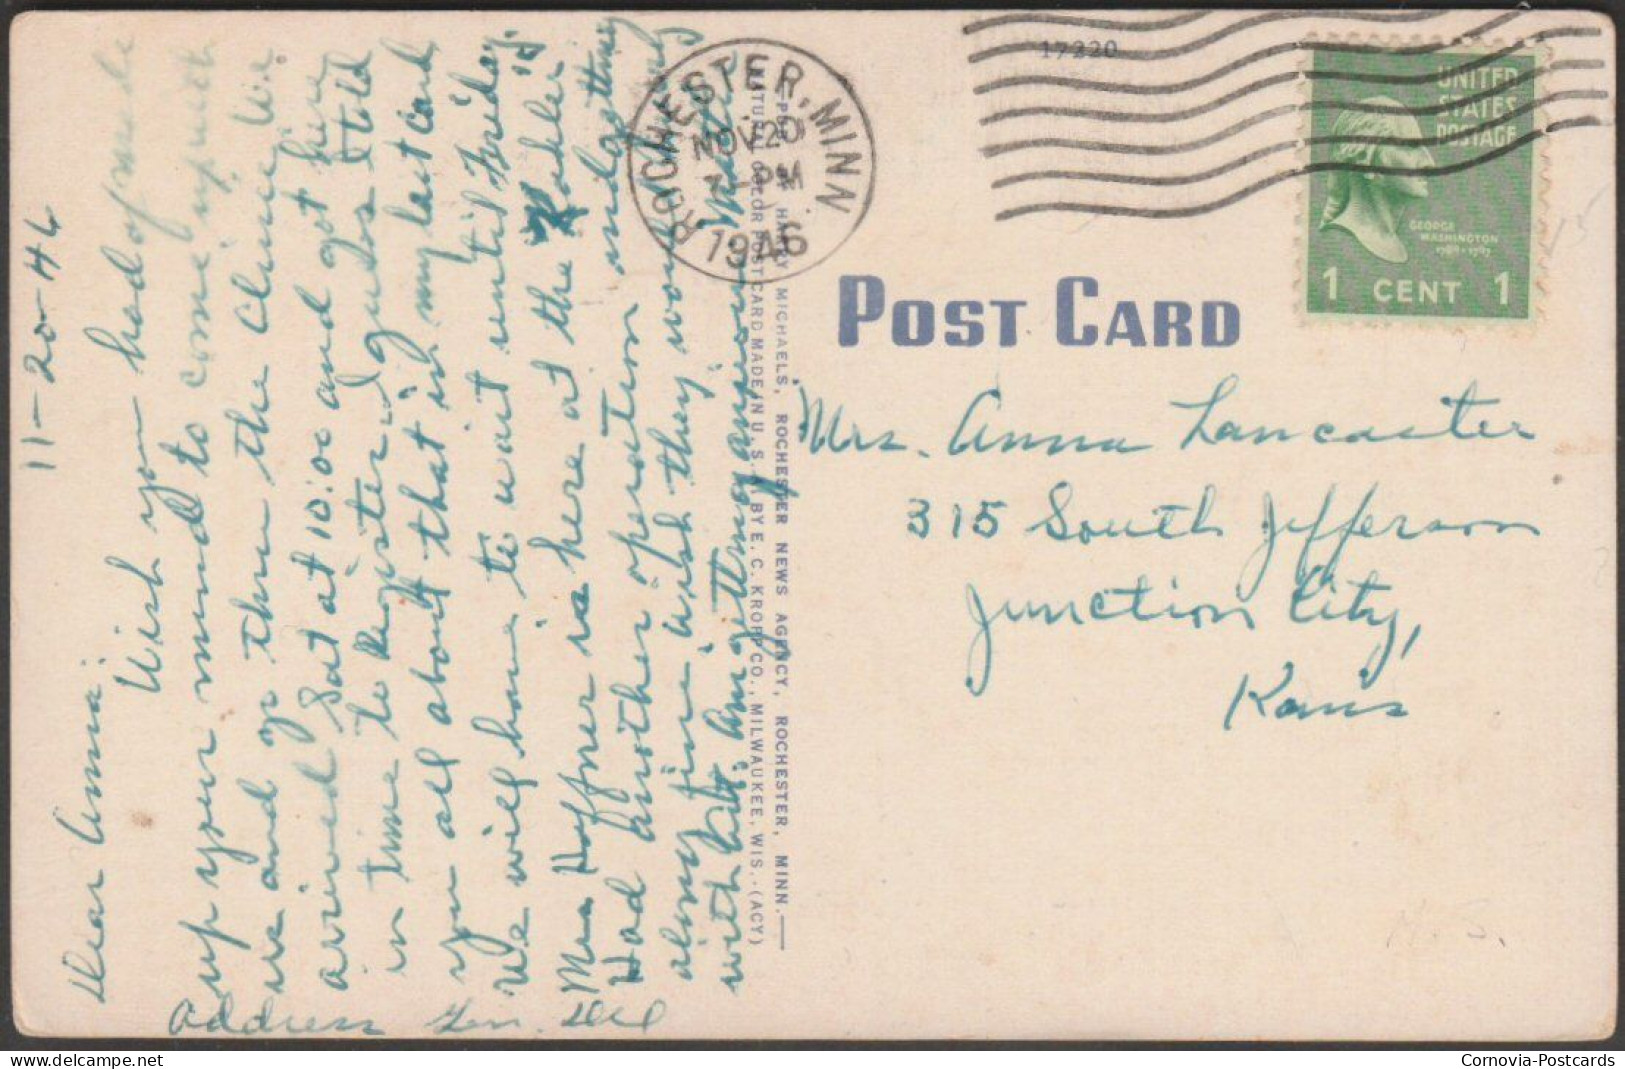 11-20-46
Dear Anna:
Wish you had of made
up your mind to come up with
us and go thru the clinic. We
arrived Sat at 10:00 and got here
in time to Register, I guess I told
you all about that in my last card
We will have to wait until Friday.
Mrs Hoffner is here at the Kahler
Had another operation and getting
along fine wish they would hurry
with
am getting anxious
Address Gen. Del
ROCHESTER, MINN
NOV 20
7 - PM
1946
17220
UNITED
STATES
POSTAGE
GEORGE
WASHINGTON
1789-1797
1 CENT 1
POST CARD
Mrs. Anna Lancaster
315 South Jefferson
Junction City,
Kans
HARRY MICHAELS, ROCHESTER NEWS AGENCY, ROCHESTER, MINN.—
NATURAL COLOR POST CARD MADE IN U.S.A. BY E. C. KROPP CO., MILWAUKEE, WIS.-(ACY)
H. S.
Cornovia-Postcards